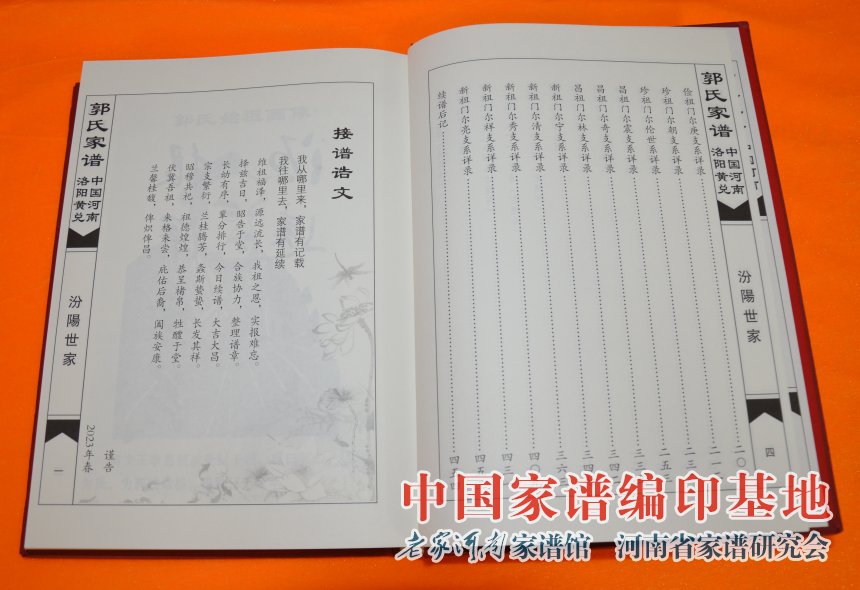 郭氏家谱
中国河南
洛阳黄兑
汾陽世家
四
俭祖门尔庚支系详录
珍祖门尔朝支系详录
珍祖门尔伦世系详录
昌祖门尔震支系详录
昌祖门尔奇支系详录
昌祖门尔林支系详录
新祖门尔宁支系详录
新祖门尔清支系详录
新祖门尔秀支系详录
新祖门尔祥支系详录
新祖门尔亮支系详录
续谱后记
接谱诰文
我从哪里来，家谱有记载
我往哪里去，家谱有延续
维祖福泽，源远流长，我祖之恩，实报难忘。
择兹吉日，昭告于堂，合族协力，整理谱章。
长幼有序，辈分排行，今日续谱，大吉大昌。
宗支繁衍，兰桂腾芳，螽斯蛰蛰，长发其祥。
昭穆共祀，祖德煌煌，恭呈楮帛，牲醴于堂。
伏冀吾祖，来格来尝，庇佑后裔，阖族安康。
兰馨桂馥，俾炽俾昌。
谨告
2023年春
郭氏家谱
中国河南
洛阳黄兑
汾陽世家
一
中国家谱编印基地
老家河南家谱馆 河南省家谱研究会